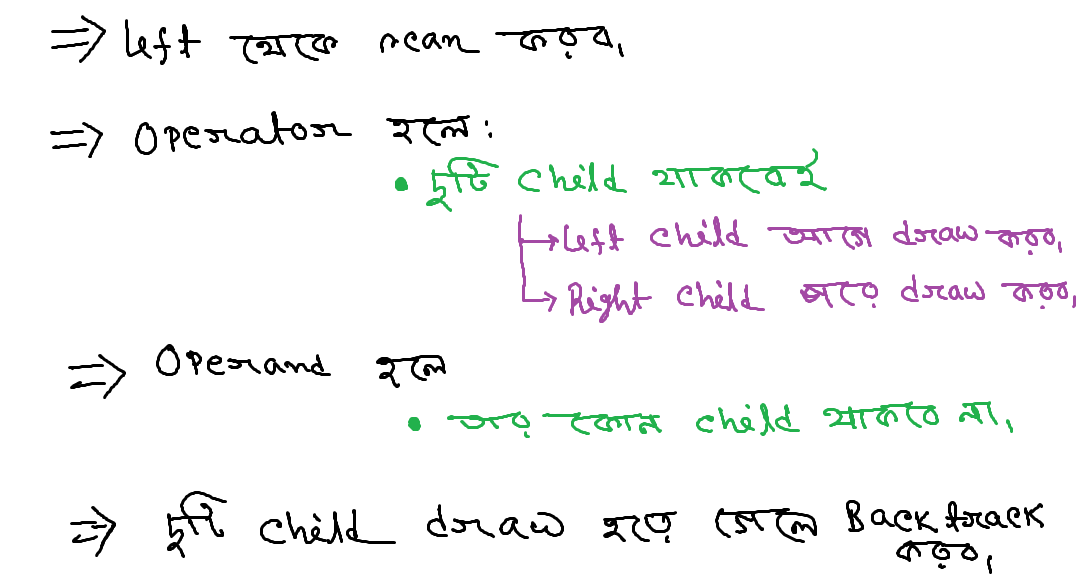 ⇒ Left থেকে scan করব,
⇒ Operator হলে:
• দুটি child থাকবেই
→ Left child আগে draw করব,
→ Right child পরে draw করব,
⇒ Operand হলে
• তার কোন child থাকবে না,
⇒ দুটি child draw হয়ে গেলে Back track
করব,